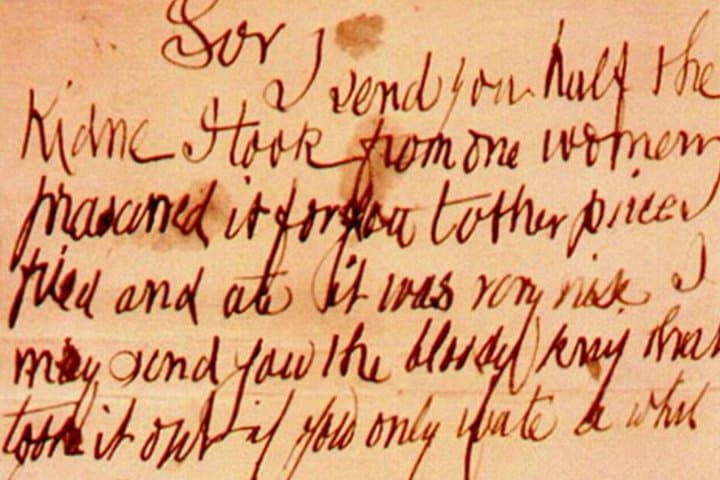 Sor
I send you half the
Kidne I took from one women
prasarved it for you tother piece I
fried and ate it was very nise I
may send you the bloody knif that
took it out if you only wate a whil